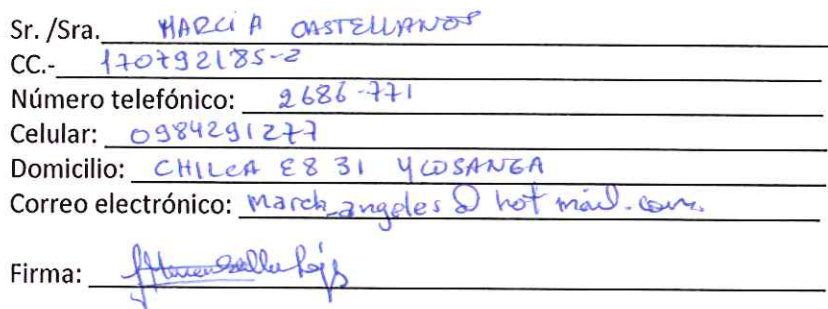 Sr. /Sra. MARCIA CASTELLANOS
CC.- 170792185-2
Número telefónico: 2686-771
Celular: 0984291277
Domicilio: CHILCA E8 31 Y COSANGA
Correo electrónico: march_angeles@hotmail.com
Firma: